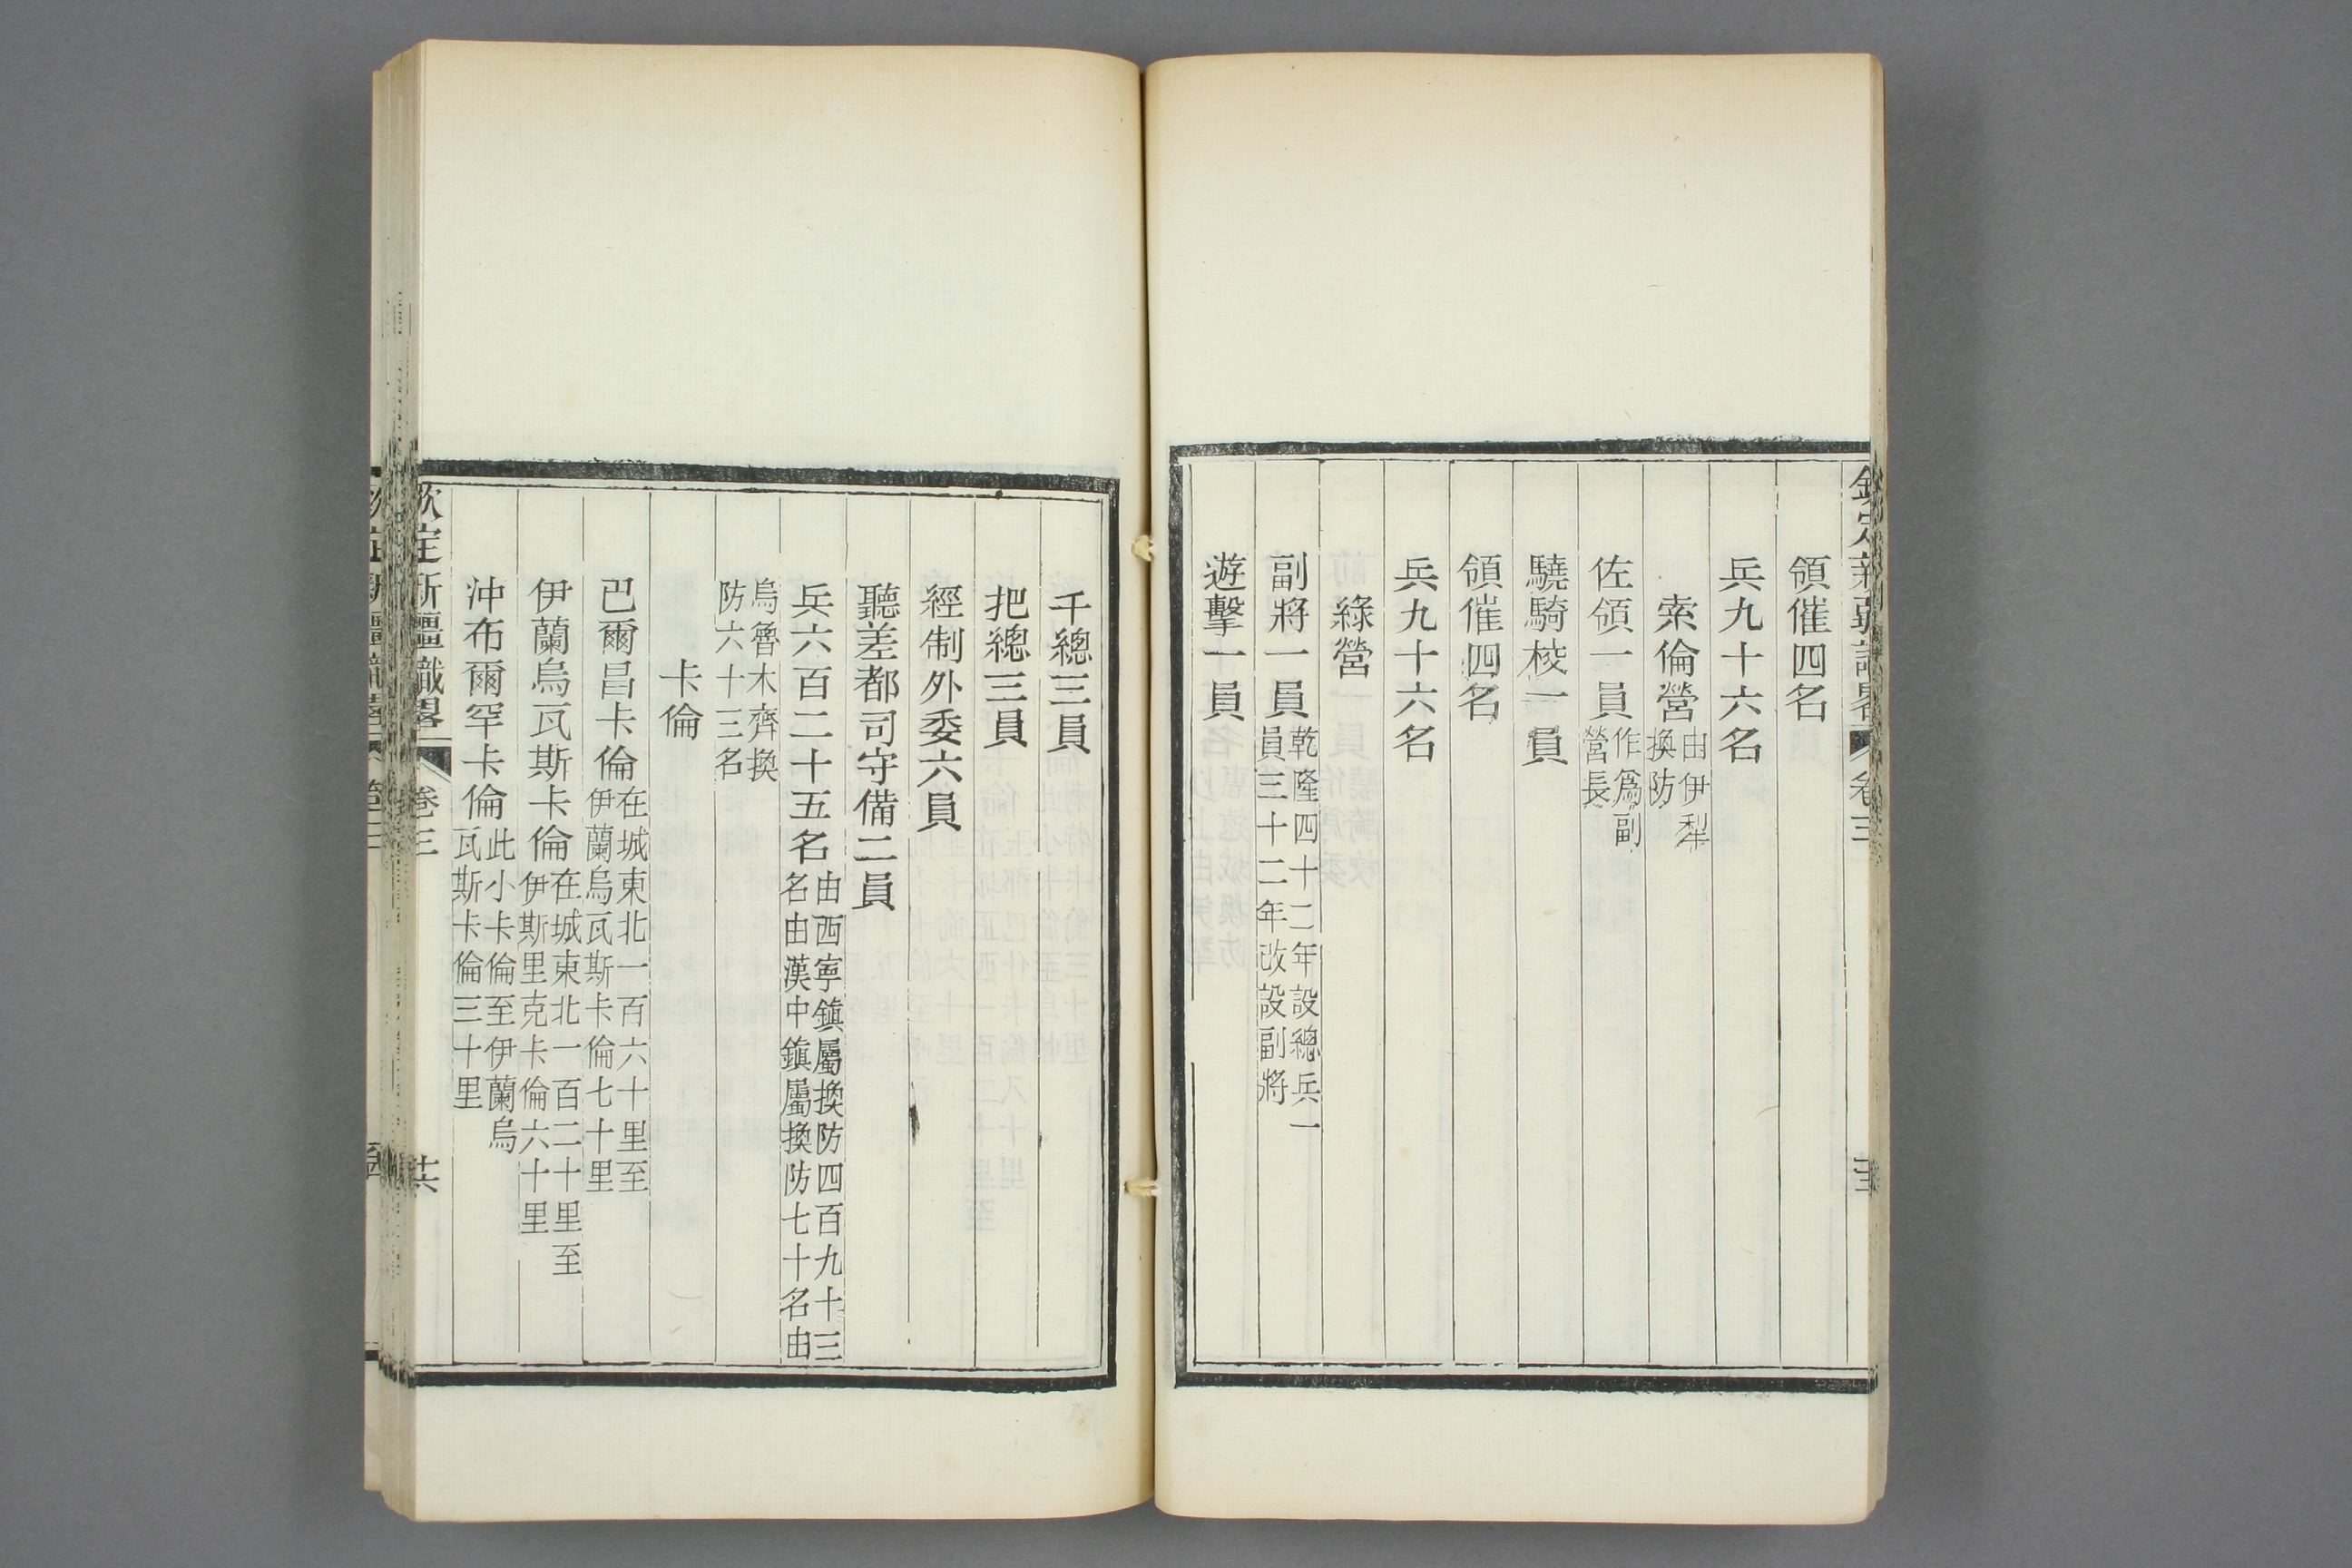 領催四名
兵九十六名
索倫營由伊犁換防
佐領一員作爲副營長
驍騎校一員
領催四名
兵九十六名
綠營
副將一員乾隆四十二年設總兵一員三十二年改設副將
遊擊一員
千總三員
把總三員
經制外委六員
聽差都司守備二員
兵六百二十五名由西寧鎮屬換防四百九十三名由漢中鎮屬換防七十名由
烏魯木齊換防六十三名
卡倫
巴爾昌卡倫在城東北一百六十里至伊蘭烏瓦斯卡倫七十里
伊蘭烏瓦斯卡倫在城東北一百二十里至伊斯里克卡倫六十里
沖布爾罕卡倫此小卡倫至伊蘭烏瓦斯卡倫三十里
欽定新疆識畧 卷三